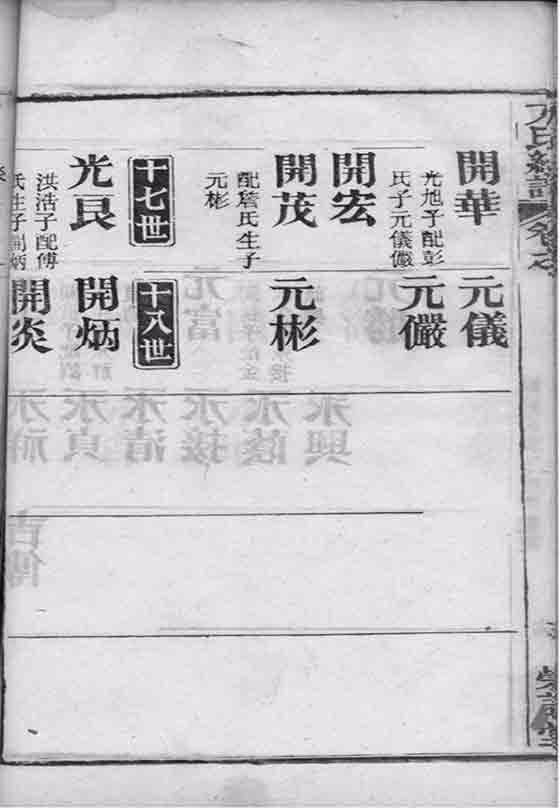 卷之
開華
光旭子配彭
氏子元儀儼
開宏
開茂
配詹氏生子
元彬
十七世
光艮
洪活子配傅
氏生子開炳
元儀
元儼
元彬
十八世
開炳
開炎